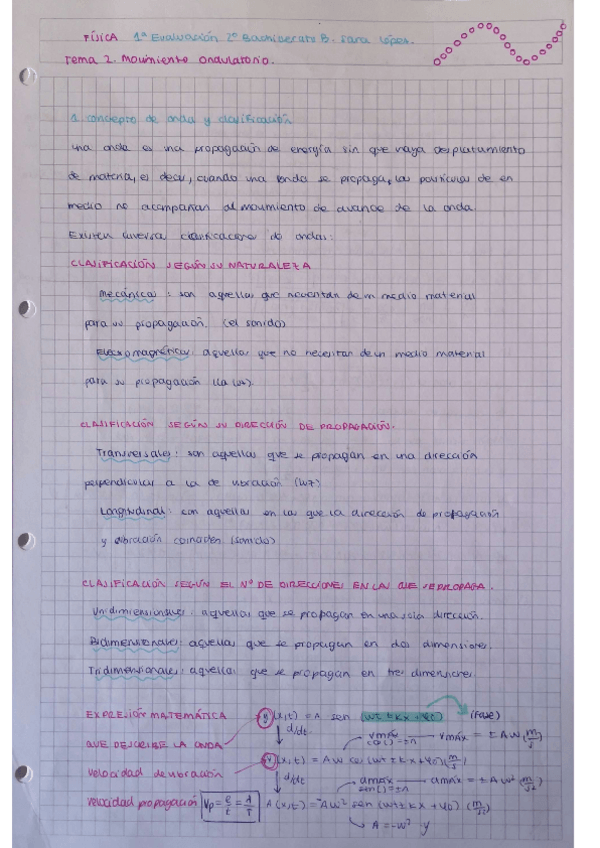 FÍSICA 1ª Evaluación 2º Bachillerato B. Sara López.
Tema 2. Movimiento ondulatorio.
1. concepto de onda y clasificación
una onda es una propagación de energía sin que haya desplazamiento
de materia, es decir, cuando una onda se propaga, las partículas de en
medio no acompañan al movimiento de avance de la onda
Existen diversas clasificaciones de ondas:
CLASIFICACIÓN SEGÚN SU NATURALEZA
Mecánicas: son aquellas que necesitan de un medio material
para su propagación. (el sonido)
Electromagnéticas: aquellas que no necesitan de un medio material
para su propagación (la luz).
CLASIFICACIÓN SEGÚN SU DIRECCIÓN DE PROPAGACIÓN.
Transversales: son aquellas que se propagan en una dirección
perpendicular a la de vibración (luz)
Longitudinal: son aquellas en las que la dirección de propagación
y vibración coinciden (sonido)
CLASIFICACIÓN SEGÚN EL Nº DE DIRECCIONES EN LAS QUE SE PROPAGA.
Unidimensionales: aquellas que se propagan en una sola dirección.
Bidimensionales: aquellas que se propagan en dos dimensiones.
Tridimensionales: aquellas que se propagan en tres dimensiones
EXPRESIÓN MATEMÁTICA y(x,t) = A sen (wt ± kx + φ0) (fase)
QUE DESCRIBE LA ONDA d/dt vmáx cos( )=±1 vmáx = ± Aw (m/s)
velocidad de vibración v(x,t) = Aw cos (wt ± kx + φ0) (m/s)
d/dt amáx sen( )=±1 amáx = ± Aw² (m/s²)
velocidad propagación Vp = e/t = λ/T A(x,t) = -Aw² sen (wt ± kx + φ0) (m/s²)
A = -w² y